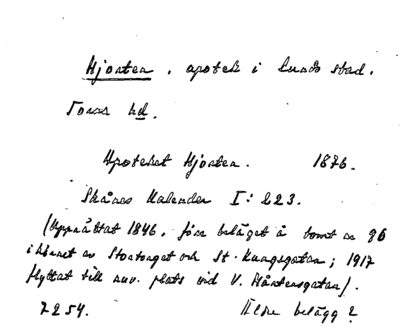 Hjorten, apotek i Lunds stad.
Torna hd.
Apoteket Hjorten. 1876.
Skånes Kalender I: 223.
(Upprättat 1846, förr beläget å tomt nr 96
i hörnet av Stortorget och St. Kungsgatan; 1917
flyttat till nuv. plats vid V. Mårtensgatan).
7254. Äldre belägg?